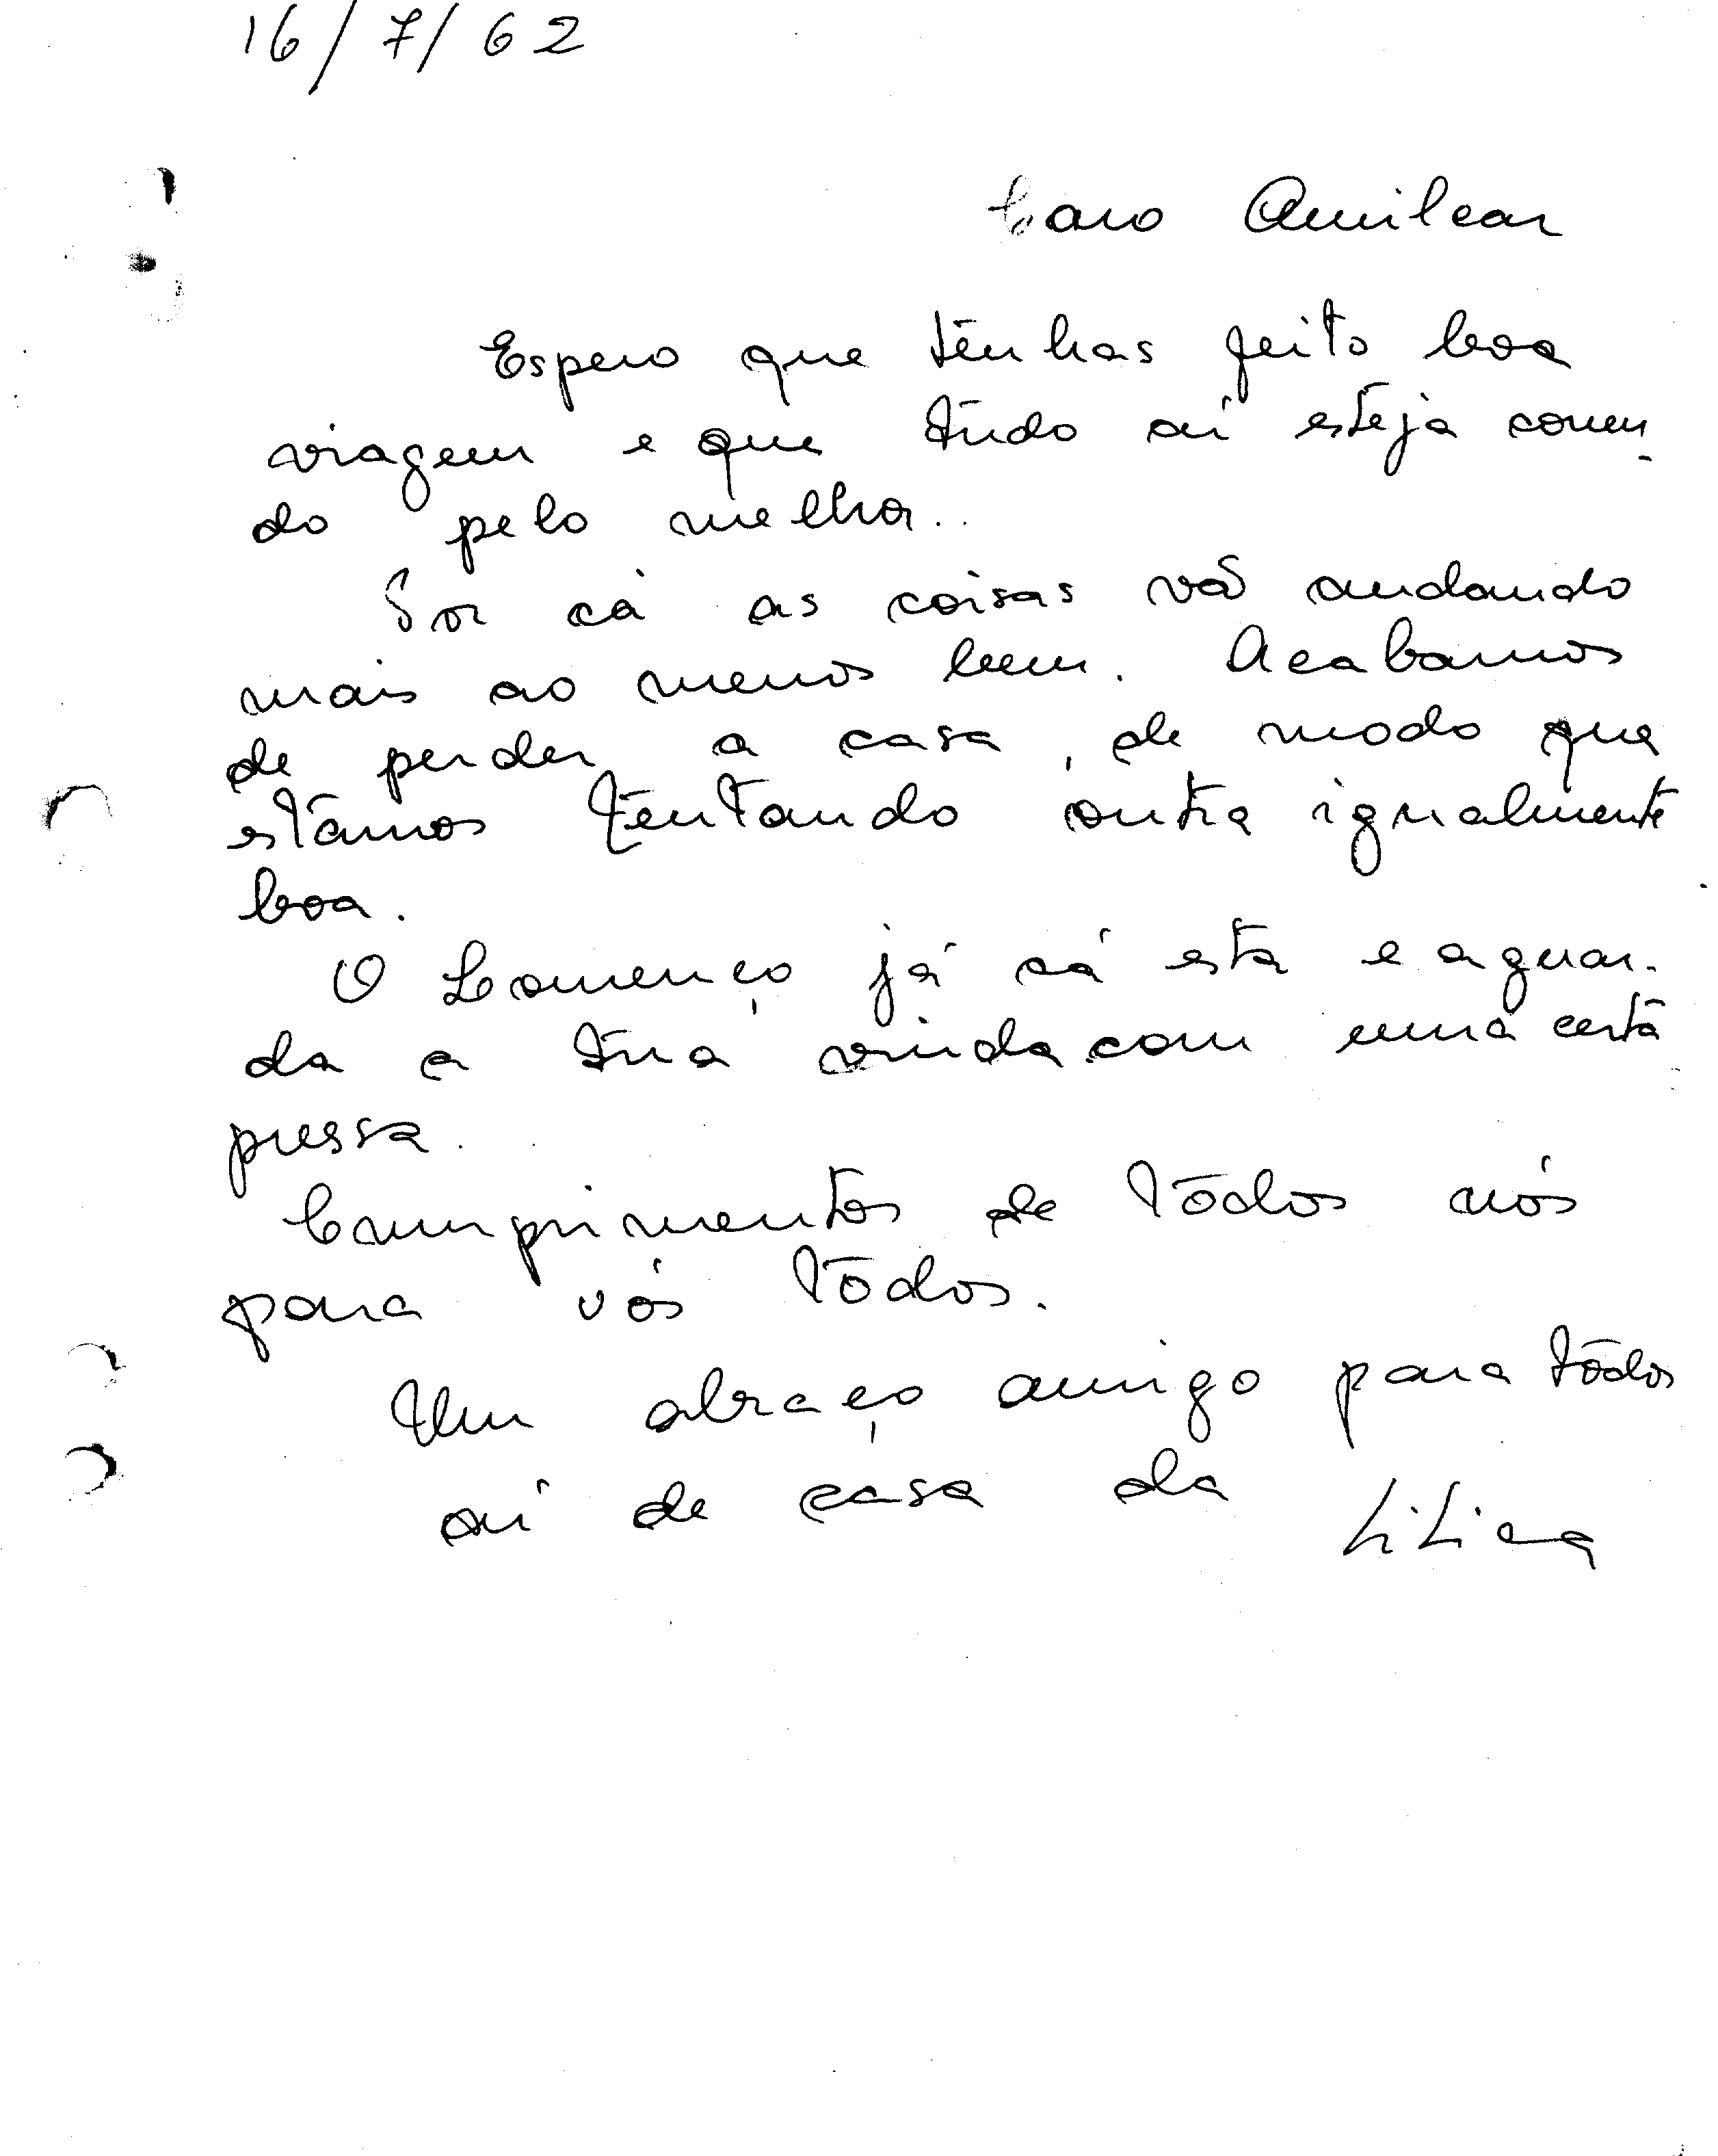 16/7/62
Caro Amilcar
Espero que tenhas feito boa
viagem e que tudo aí esteja corren-
do pelo melhor..
Por cá as coisas vão andando
mais ao menos bem. Acabamos
de perder a casa, de modo que
estamos tentando outra igualmente
boa.
O Lourenço já cá esta e aguar-
da a tua vinda com uma certa
pressa.
Cumprimentos de todos nós
para vós todos.
Um abraço amigo para todos
aí de casa da Lilica